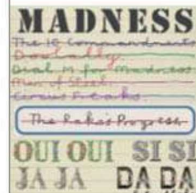 MADNESS
The 10 Commandments
Doolally
Dial M for Madness
Men of Steel
Circus Freaks
The Rake's Progress
OUI OUI SI SI
JA JA DA DA